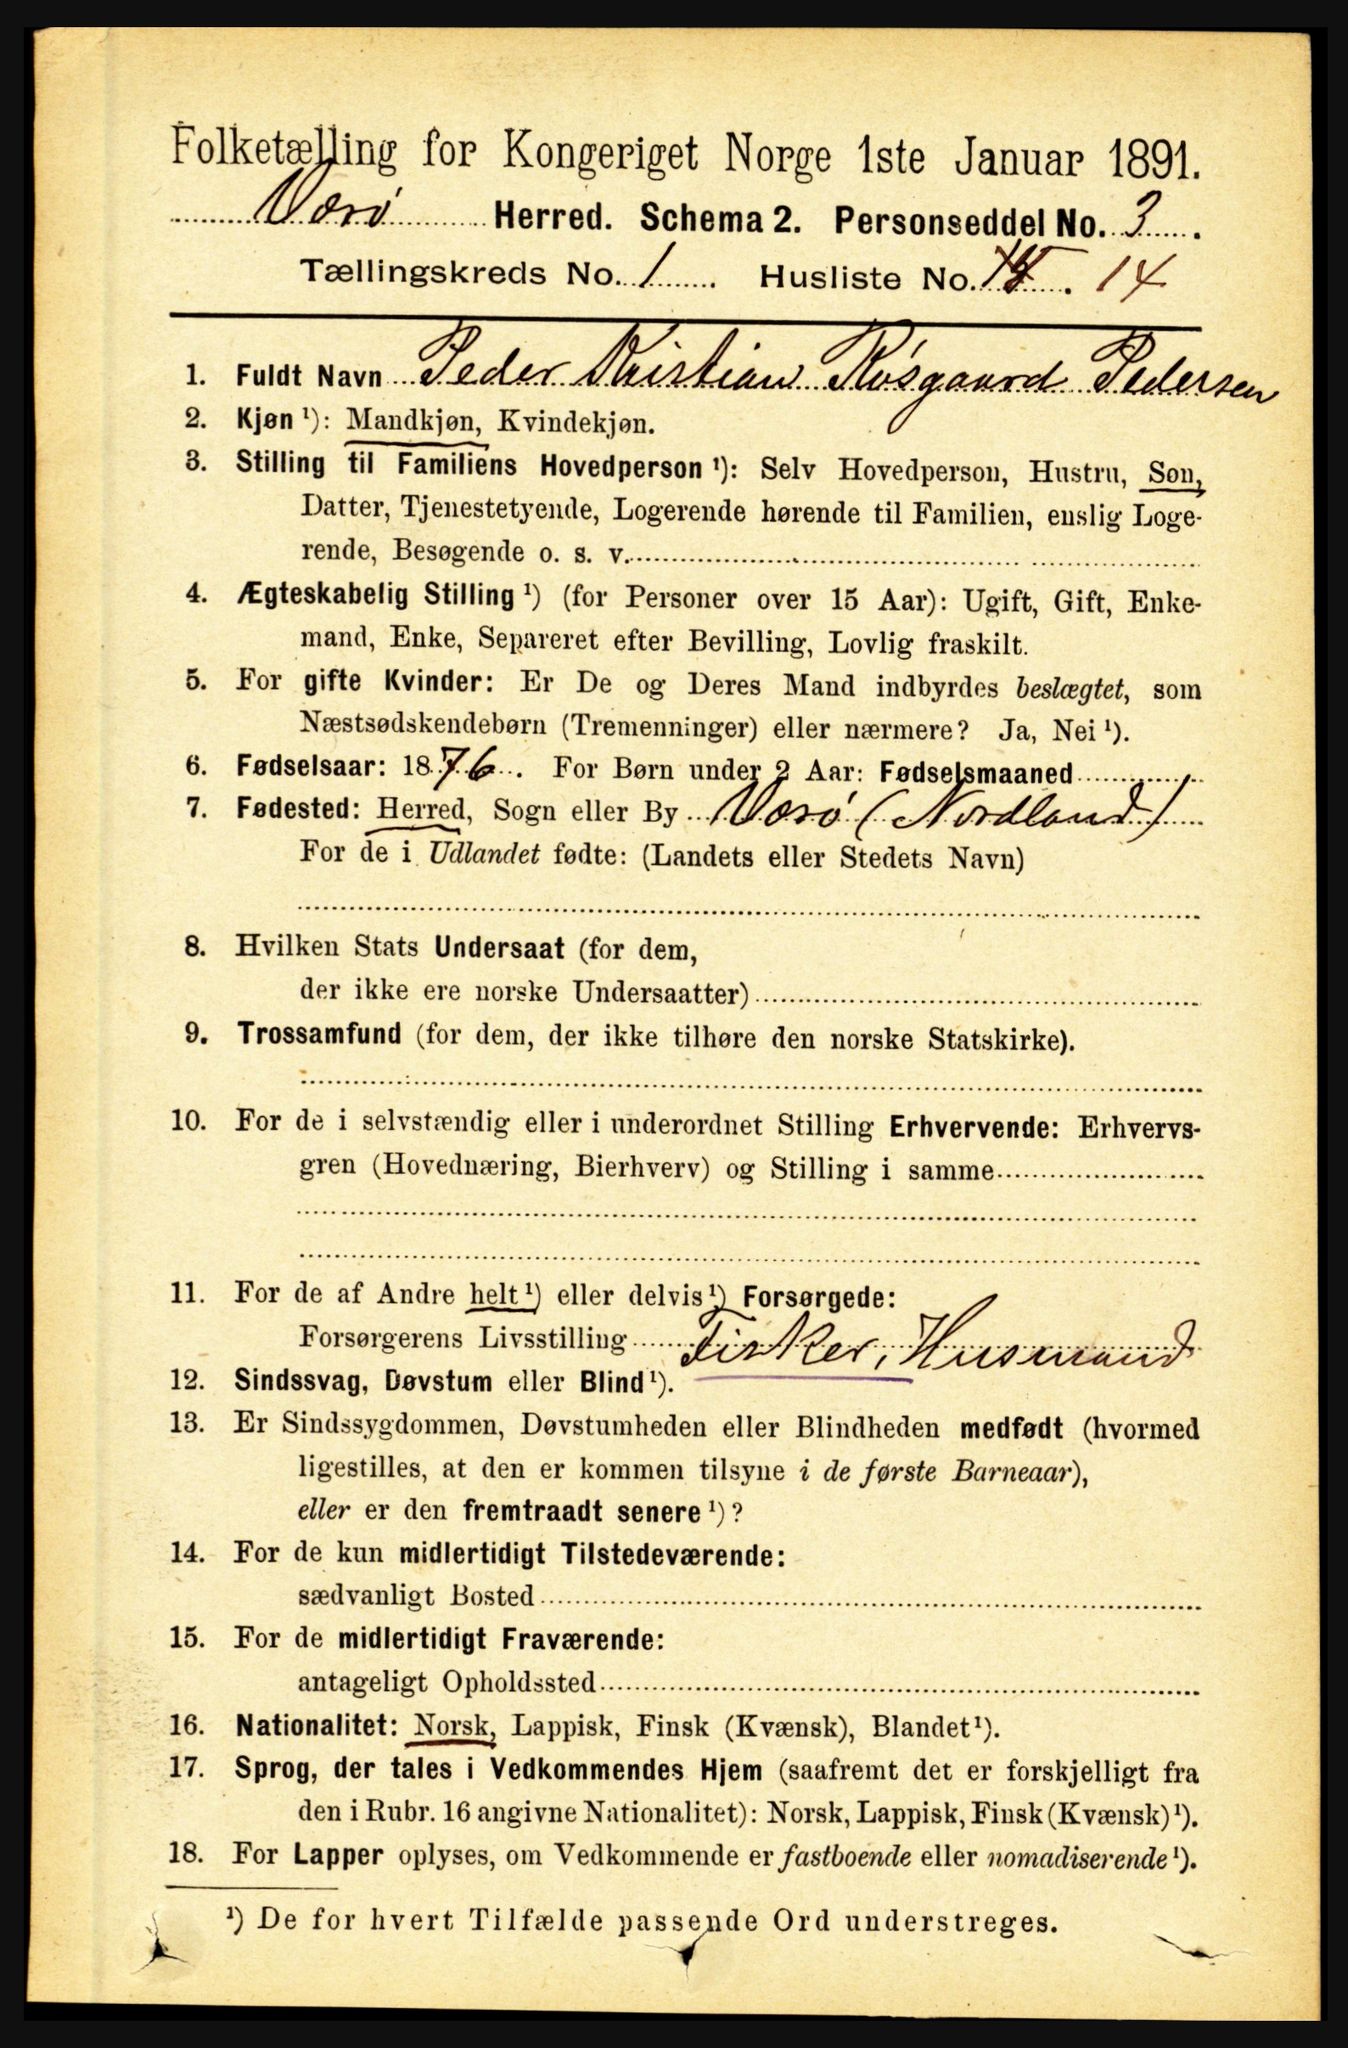 Folketælling for Kongeriget Norge 1ste Januar 1891.
Værø Herred. Schema 2. Personseddel No. 3.
Tællingskreds No. 1. Husliste No. 14
1. Fuldt Navn Peder Kristian Røsgaard Pedersen
2. Kjøn ¹): Mandkjøn, Kvindekjøn.
3. Stilling til Familiens Hovedperson ¹): Selv Hovedperson, Hustru, Søn,
Datter, Tjenestetyende, Logerende hørende til Familien, enslig Loge-
rende, Besøgende o. s. v.
4. Ægteskabelig Stilling ¹) (for Personer over 15 Aar): Ugift, Gift, Enke-
mand, Enke, Separeret efter Bevilling, Lovlig fraskilt.
5. For gifte Kvinder: Er De og Deres Mand indbyrdes beslægtet, som
Næstsødskendebørn (Tremenninger) eller nærmere? Ja, Nei ¹).
6. Fødselsaar: 1876. For Børn under 2 Aar: Fødselsmaaned
7. Fødested: Herred, Sogn eller By Værø (Nordland)
For de i Udlandet fødte: (Landets eller Stedets Navn)
8. Hvilken Stats Undersaat (for dem,
der ikke ere norske Undersaatter)
9. Trossamfund (for dem, der ikke tilhøre den norske Statskirke).
10. For de i selvstændig eller i underordnet Stilling Erhvervende: Erhvervs-
gren (Hovednæring, Bierhverv) og Stilling i samme
11. For de af Andre helt ¹) eller delvis ¹) Forsørgede:
Forsørgerens Livsstilling Fisker, Husmand
12. Sindssvag, Døvstum eller Blind ¹).
13. Er Sindssygdommen, Døvstumheden eller Blindheden medfødt (hvormed
ligestilles, at den er kommen tilsyne i de første Barneaar),
eller er den fremtraadt senere ¹)?
14. For de kun midlertidigt Tilstedeværende:
sædvanligt Bosted
15. For de midlertidigt Fraværende:
antageligt Opholdssted
16. Nationalitet: Norsk, Lappisk, Finsk (Kvænsk), Blandet ¹).
17. Sprog, der tales i Vedkommendes Hjem (saafremt det er forskjelligt fra
den i Rubr. 16 angivne Nationalitet): Norsk, Lappisk, Finsk (Kvænsk) ¹).
18. For Lapper oplyses, om Vedkommende er fastboende eller nomadiserende ¹).
¹) De for hvert Tilfælde passende Ord understreges.